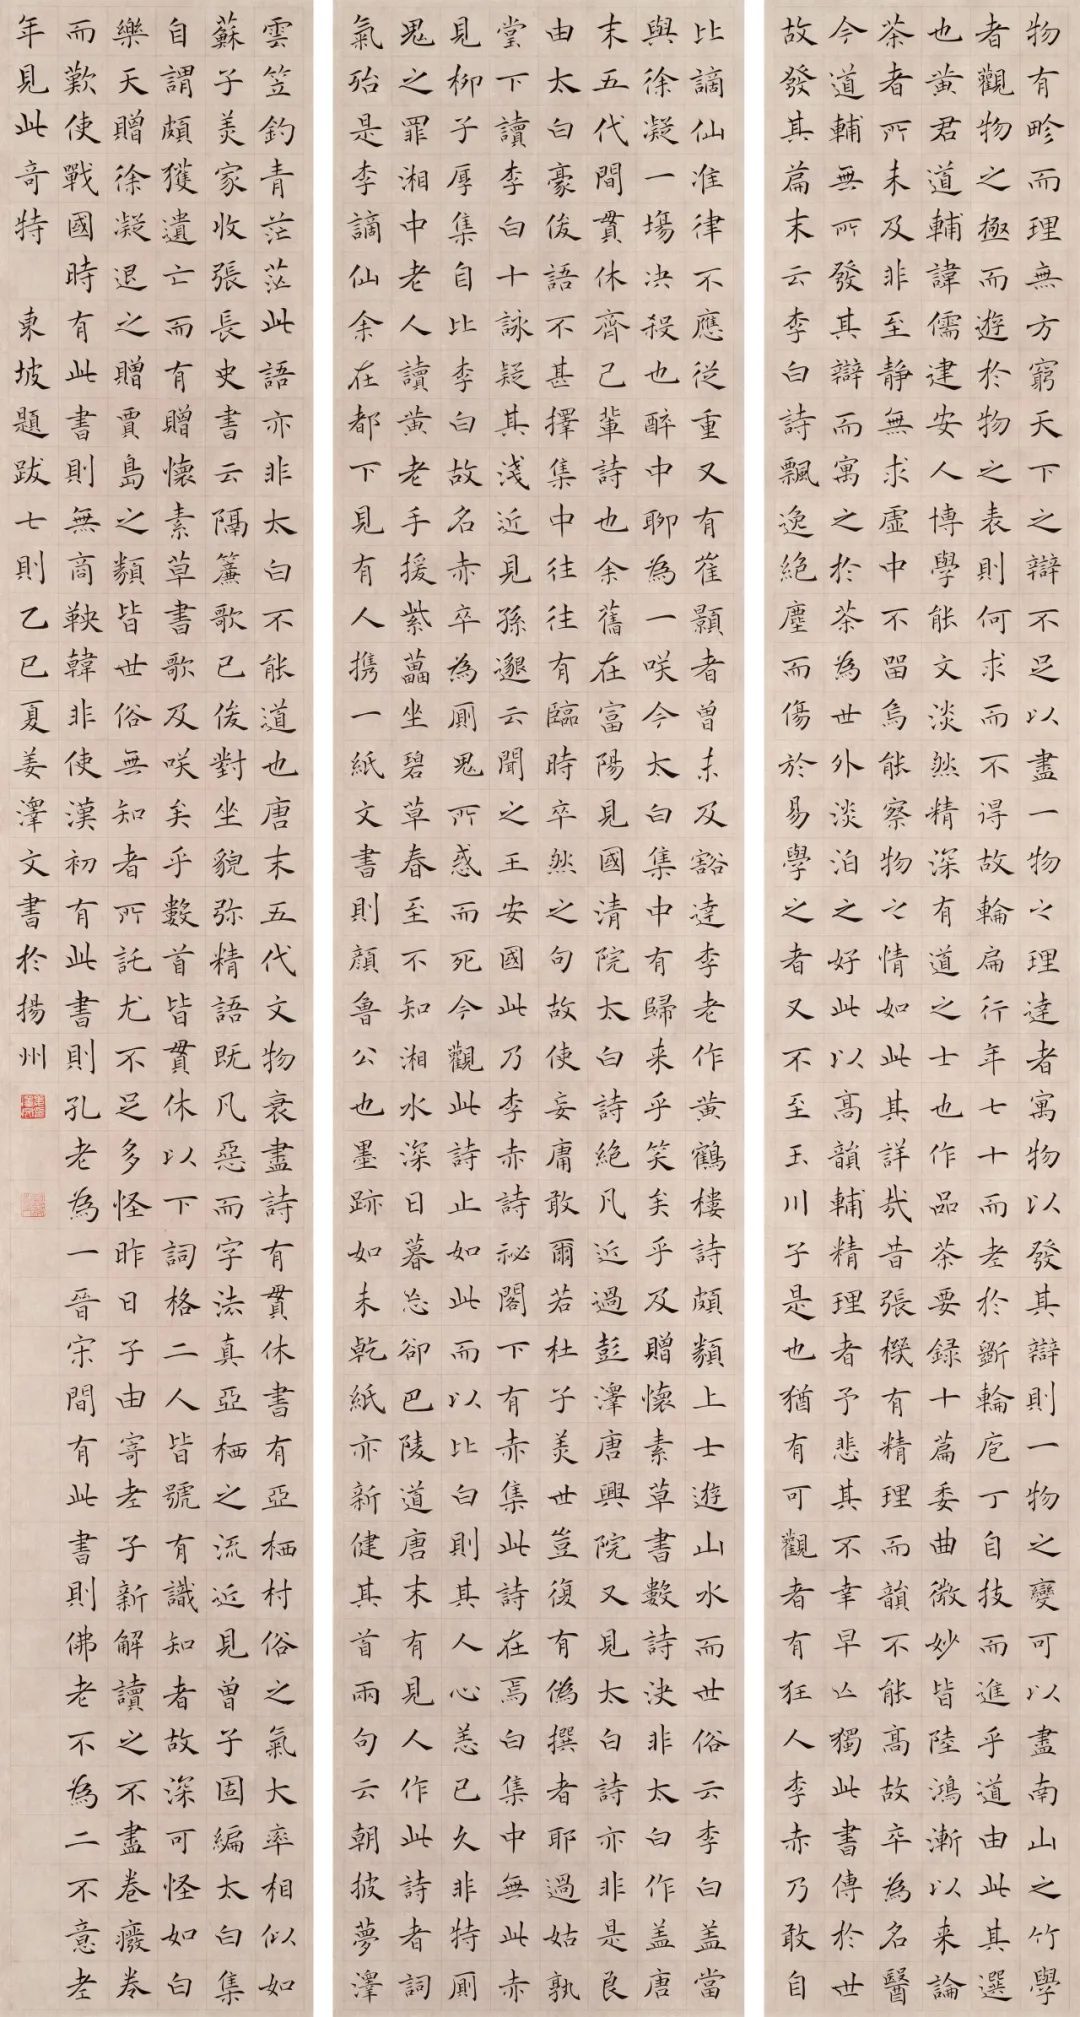 物有畛而理無方窮天下之辯不足以盡一物之理達者寓物以發其辯則一物之變可以盡南山之竹學
者觀物之極而遊於物之表則何求而不得故輪扁行年七十而老於斵輪庖丁自技而進乎道由此其選
也黄君道輔諱儒建安人博學能文淡然精深有道之士也作品茶要録十篇委曲微妙皆陸鴻漸以来論
茶者所未及非至靜無求虚中不留烏能察物之情如此其詳哉昔張機有精理而韻不能高故卒為名醫
今道輔無所發其辯而寓之於茶為世外淡泊之好此以高韻輔精理者予悲其不幸早亡獨此書傳於世
故發其篇末云李白詩飄逸絶塵而傷於易學之者又不至玉川子是也猶有可觀者有狂人李赤乃敢自
比謫仙准律不應從重又有崔顥者曽未及豁達李老作黄鶴樓詩頗類上士遊山水而世俗云李白盖當
與徐凝一場决殺也醉中聊為一咲今太白集中有歸来乎笑矣乎及贈懷素草書數詩决非太白作盖唐
末五代間貫休齊己輩詩也余舊在富陽見國清院太白詩絶凡近過彭澤唐興院又見太白詩亦非是良
由太白豪俊語不甚擇集中往往有臨時卒然之句故使妄庸敢爾若杜子美世豈復有偽撰者耶過姑孰
堂下讀李白十詠疑其淺近見孫邈云聞之王安國此乃李赤詩祕閣下有赤集此詩在焉白集中無此赤
見柳子厚集自比李白故名赤卒為厠鬼所惑而死今觀此詩止如此而以比白則其人心恙已久非特厠
鬼之罪湘中老人讀黄老手援紫藟坐碧草春至不知湘水深日暮忘卻巴陵道唐末有見人作此詩者詞
氣殆是李謫仙余在都下見有人携一紙文書則顔魯公也墨跡如未乾紙亦新健其首兩句云朝披夢澤
雲笠釣青茫茫此語亦非太白不能道也唐末五代文物衰盡詩有貫休書有亞栖村俗之氣大率相似如
蘇子美家收張長史書云隔簾歌已俊對坐貌弥精語既凡惡而字法真亞栖之流近見曽子固編太白集
自謂頗獲遺亡而有贈懷素草書歌及咲矣乎數首皆貫休以下詞格二人皆號有識知者故深可怪如白
樂天贈徐凝退之贈賈島之類皆世俗無知者所託尤不足多怪昨日子由寄老子新解讀之不盡卷癈卷
而歎使戰國時有此書則無商鞅韓非使漢初有此書則孔老為一晉宋間有此書則佛老不為二不意老
年見此奇特 東坡題跋七則乙巳夏姜澤文書於揚州